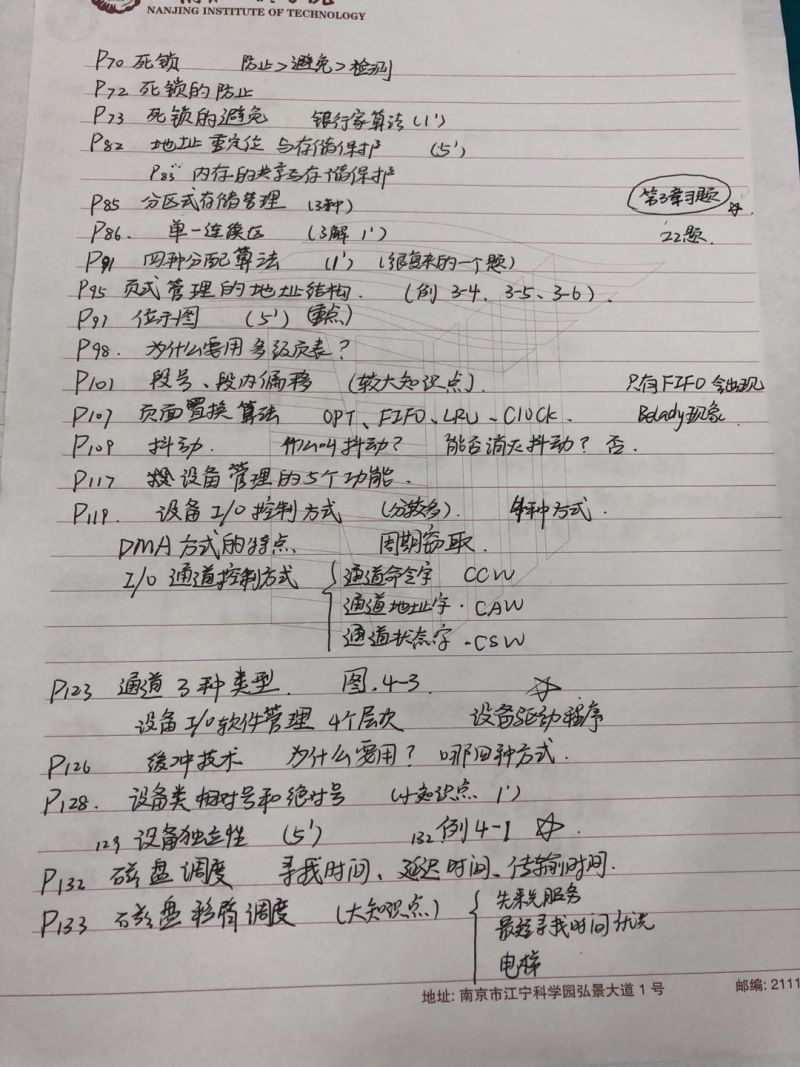 NANJING INSTITUTE OF TECHNOLOGY
P70 死锁 防止>避免>检测
P72 死锁的防止
P73 死锁的避免 银行家算法(1')
P82 地址重定位与存储保护 (5')
P83 内存的共享与存储保护
P85 分区式存储管理 (3种)
第3章习题
P86. 单一连续区 (3解 1')
22题.
P91 四种分配算法 (1') (很复杂的一个题)
P95 页式管理的地址结构. (例 3-4、3-5、3-6).
P97 位示图 (5') (重点)
P98. 为什么要用多级页表?
P101 段号、段内偏移 (较大知识点).
只有FIFO会出现
P107 页面置换算法 OPT、FIFO、LRU、Clock.
Belady现象
P109 抖动. 什么叫抖动? 能否消灭抖动? 否.
P117 设备管理的5个功能.
P119. 设备I/O控制方式 (分较多). 种方式.
DMA方式的特点、 周期窃取.
I/O通道控制方式 通道命令字 CCW
通道地址字·CAW
通道状态字·CSW
P123 通道3种类型. 图.4-3.
设备I/O软件管理 4个层次 设备驱动程序
P126 缓冲技术 为什么要用? 哪四种方式.
P128. 设备类相对号和绝对号 (小知识点 1')
129 设备独立性 (5') 132例4-1
P132 磁盘调度 寻找时间、延迟时间、传输时间.
P133 磁盘移臂调度 (大知识点) 先来先服务
最短寻找时间优先
电梯
地址: 南京市江宁科学园弘景大道1号 邮编: 2111